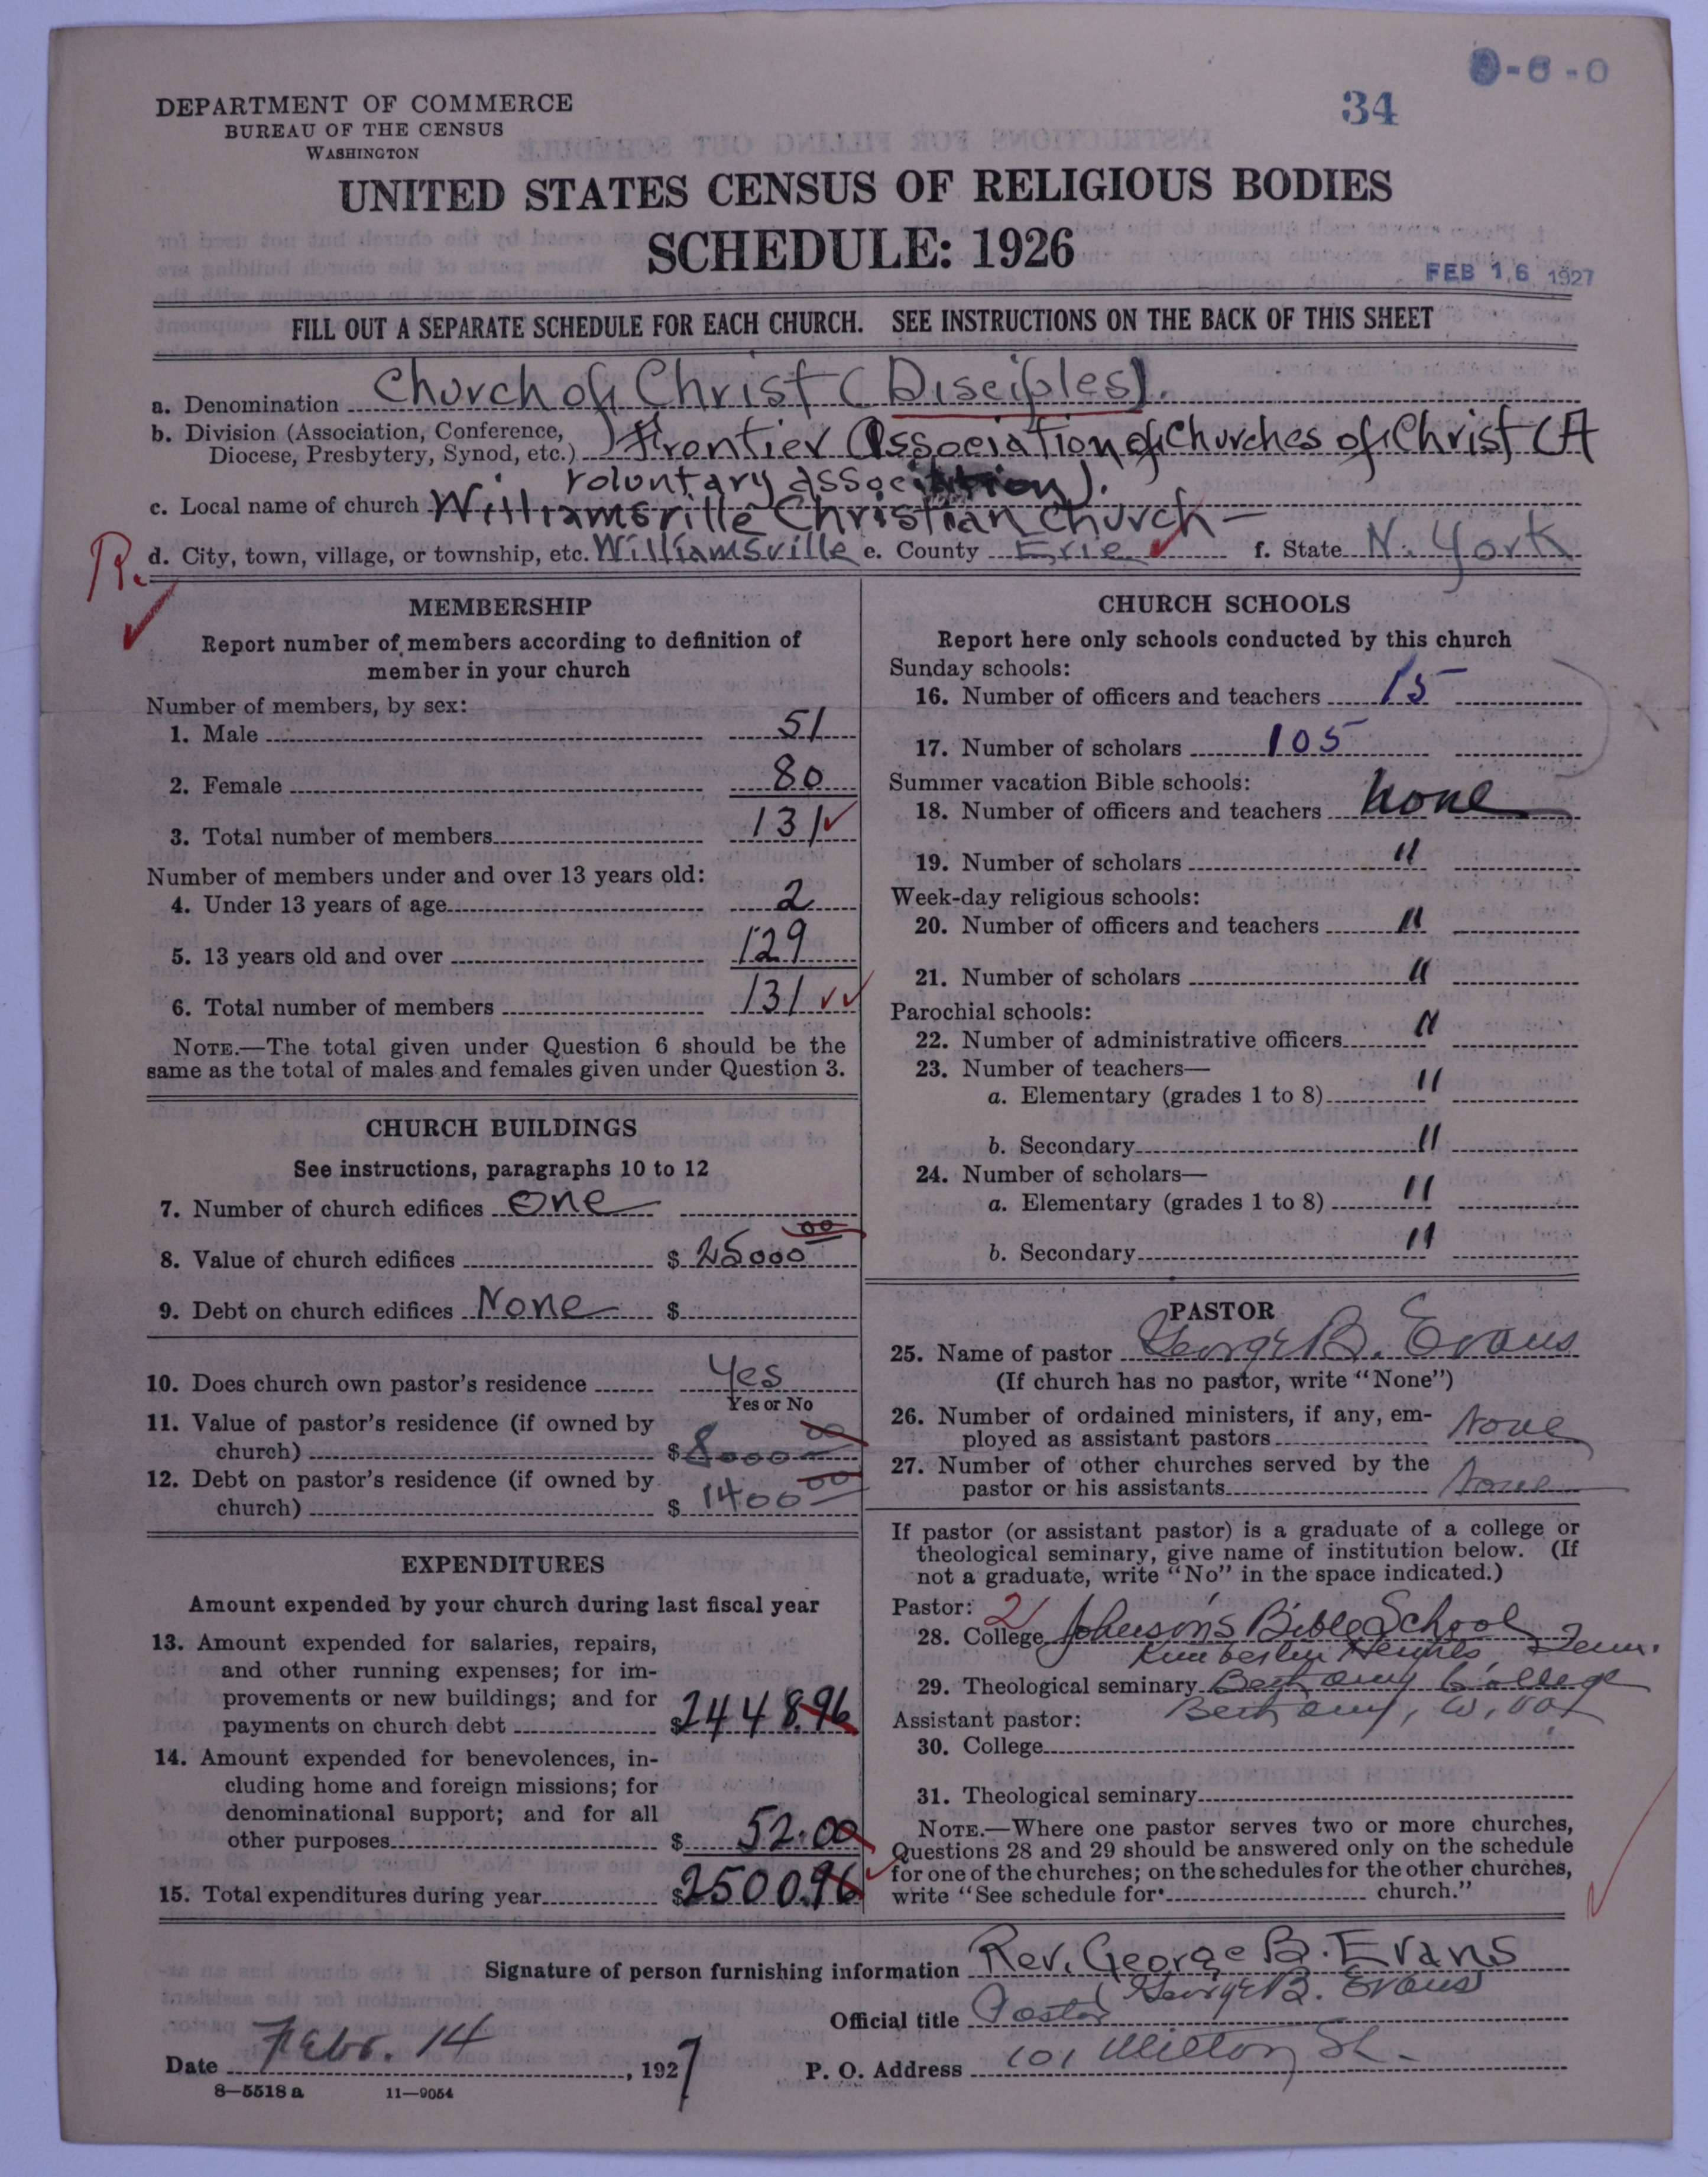 9-6-0
34
DEPARTMENT OF COMMERCE
BUREAU OF THE CENSUS
WASHINGTON
UNITED STATES CENSUS OF RELIGIOUS BODIES
SCHEDULE: 1926
FEB 16 1927
FILL OUT A SEPARATE SCHEDULE FOR EACH CHURCH. SEE INSTRUCTIONS ON THE BACK OF THIS SHEET
a. Denomination Church of Christ (Disciples).
b. Division (Association, Conference,
Diocese, Presbytery, Synod, etc.) Frontier Association of Churches of Christ (A
voluntary association).
c. Local name of church Williamsville Christian Church
R. d. City, town, village, or township, etc. Williamsville e. County Erie f. State N. York
MEMBERSHIP
Report number of members according to definition of
member in your church
Number of members, by sex:
1. Male 51
2. Female 80
3. Total number of members 131
Number of members under and over 13 years old:
4. Under 13 years of age 2
5. 13 years old and over 129
6. Total number of members 131
NOTE.—The total given under Question 6 should be the
same as the total of males and females given under Question 3.
CHURCH BUILDINGS
See instructions, paragraphs 10 to 12
7. Number of church edifices one
8. Value of church edifices $ 25000 00
9. Debt on church edifices None $
10. Does church own pastor's residence Yes
Yes or No
11. Value of pastor's residence (if owned by
church) $ 8000 00
12. Debt on pastor's residence (if owned by
church) $ 1400 00
EXPENDITURES
Amount expended by your church during last fiscal year
13. Amount expended for salaries, repairs,
and other running expenses; for im-
provements or new buildings; and for
payments on church debt $2448.96
14. Amount expended for benevolences, in-
cluding home and foreign missions; for
denominational support; and for all
other purposes $ 52.00
15. Total expenditures during year $2500.96
CHURCH SCHOOLS
Report here only schools conducted by this church
Sunday schools:
16. Number of officers and teachers 15
17. Number of scholars 105
Summer vacation Bible schools:
18. Number of officers and teachers None
19. Number of scholars "
Week-day religious schools:
20. Number of officers and teachers "
21. Number of scholars "
Parochial schools:
22. Number of administrative officers "
23. Number of teachers—
a. Elementary (grades 1 to 8) "
b. Secondary "
24. Number of scholars—
a. Elementary (grades 1 to 8) "
b. Secondary "
PASTOR
25. Name of pastor George B. Evans
(If church has no pastor, write "None")
26. Number of ordained ministers, if any, em-
ployed as assistant pastors None
27. Number of other churches served by the
pastor or his assistants None
If pastor (or assistant pastor) is a graduate of a college or
theological seminary, give name of institution below. (If
not a graduate, write "No" in the space indicated.)
Pastor: 2
28. College Johnson's Bible School
Kimberlin Heights, Tenn.
29. Theological seminary Bethany College
Bethany, W. Va
Assistant pastor:
30. College
31. Theological seminary
NOTE.—Where one pastor serves two or more churches,
Questions 28 and 29 should be answered only on the schedule
for one of the churches; on the schedules for the other churches,
write "See schedule for church."
Signature of person furnishing information Rev. George B. Evans
George B. Evans
Official title Pastor
Date Febr. 14, 1927
P. O. Address 101 Milton St.
8—5518 a 11—9054